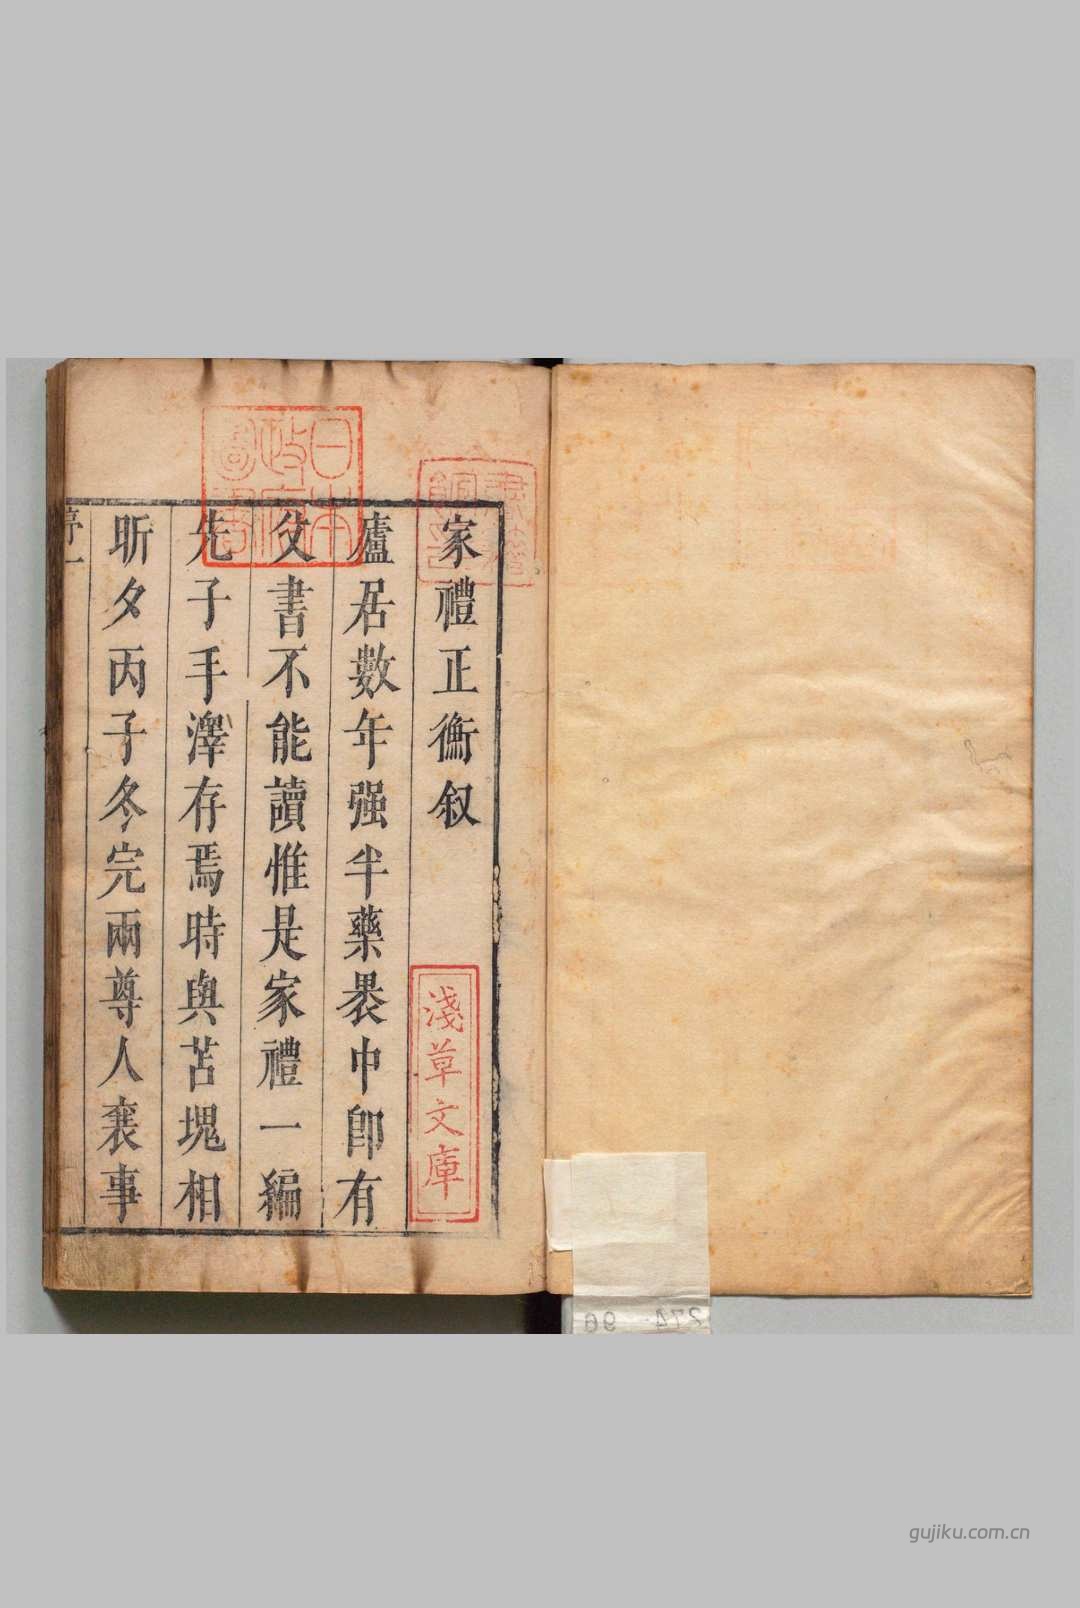 家禮正衡叙
廬居數年强半藥褁中即有
父書不能讀惟是家禮一編
先子手澤存焉時與苫塊相
昕夕丙子冬完兩尊人襄事
序一
日本
政府
圖書
淺草文庫
274 96
gujiku.com.cn